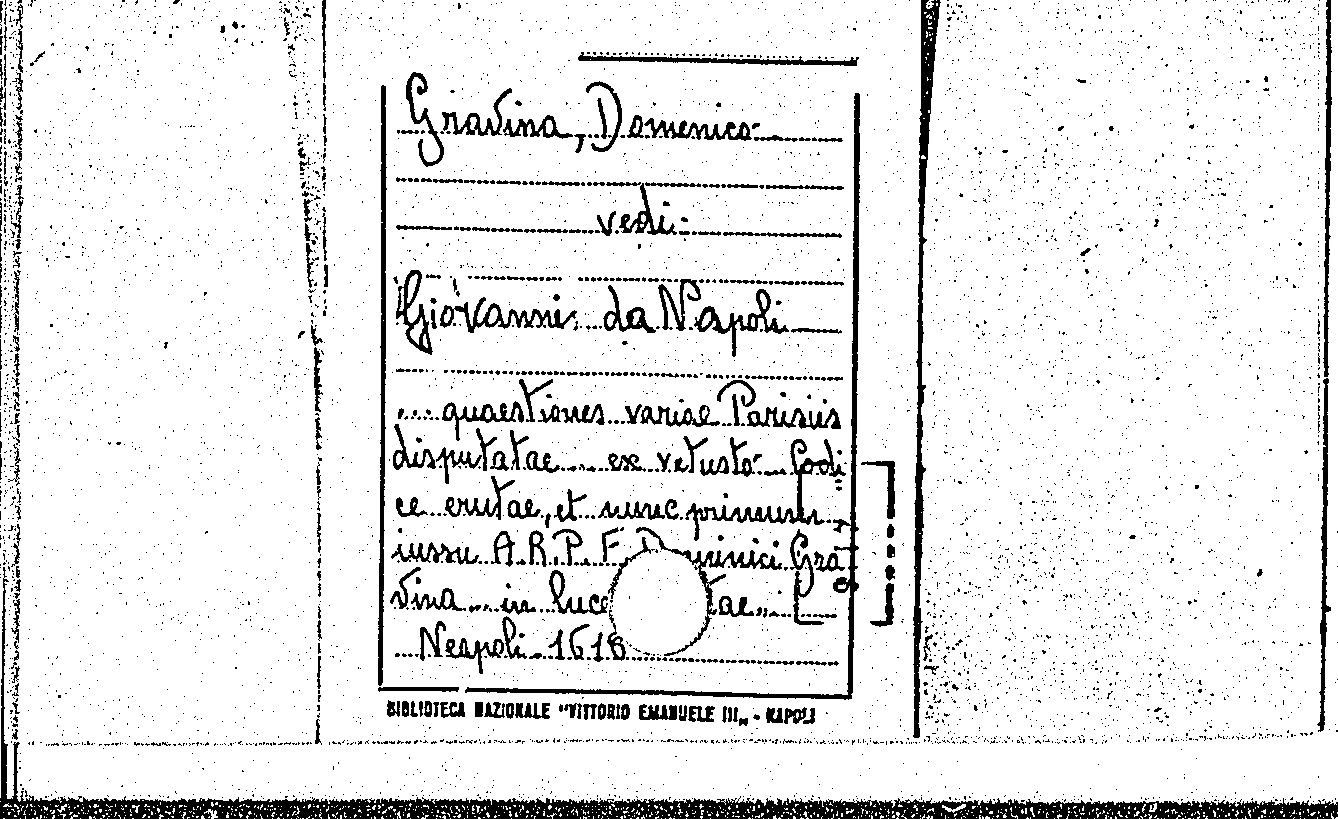 Gravina, Domenico
vedi:
Giovanni da Napoli
... quaestiones variae Parisiis
disputatae ... ex vetusto Codi
ce erutae, et nunc primum
iussu A.R.P.F. Dominici Gra
vina ... in luce tae...
Neapoli 1618
BIBLIOTECA NAZIONALE "VITTORIO EMANUELE III„ - NAPOLI